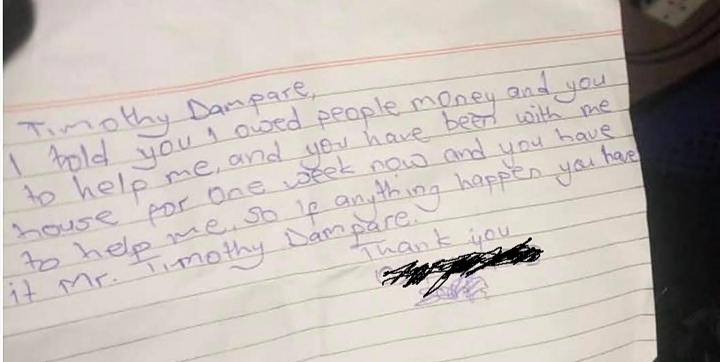 Timothy Dampare,
I told you I owed people money and you
to help me, and you have been with me
house for one week now and you have
to help me. So if anything happen you have
it Mr. Timothy Dampare.
Thank you